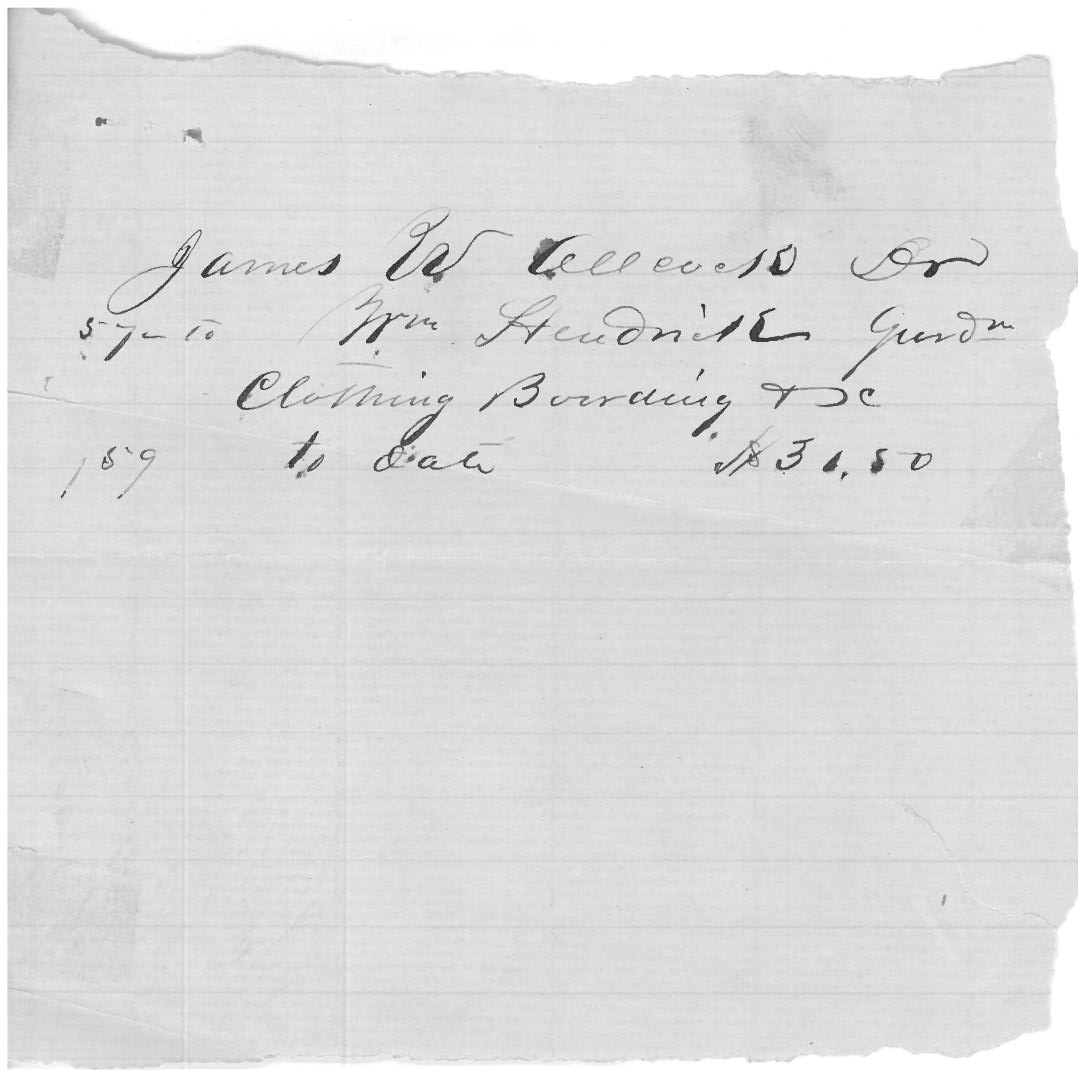 James W Allcock Dr
57 to Wm Hendrick Gurdn
Clothing Boarding & c
/59 to date $31,50